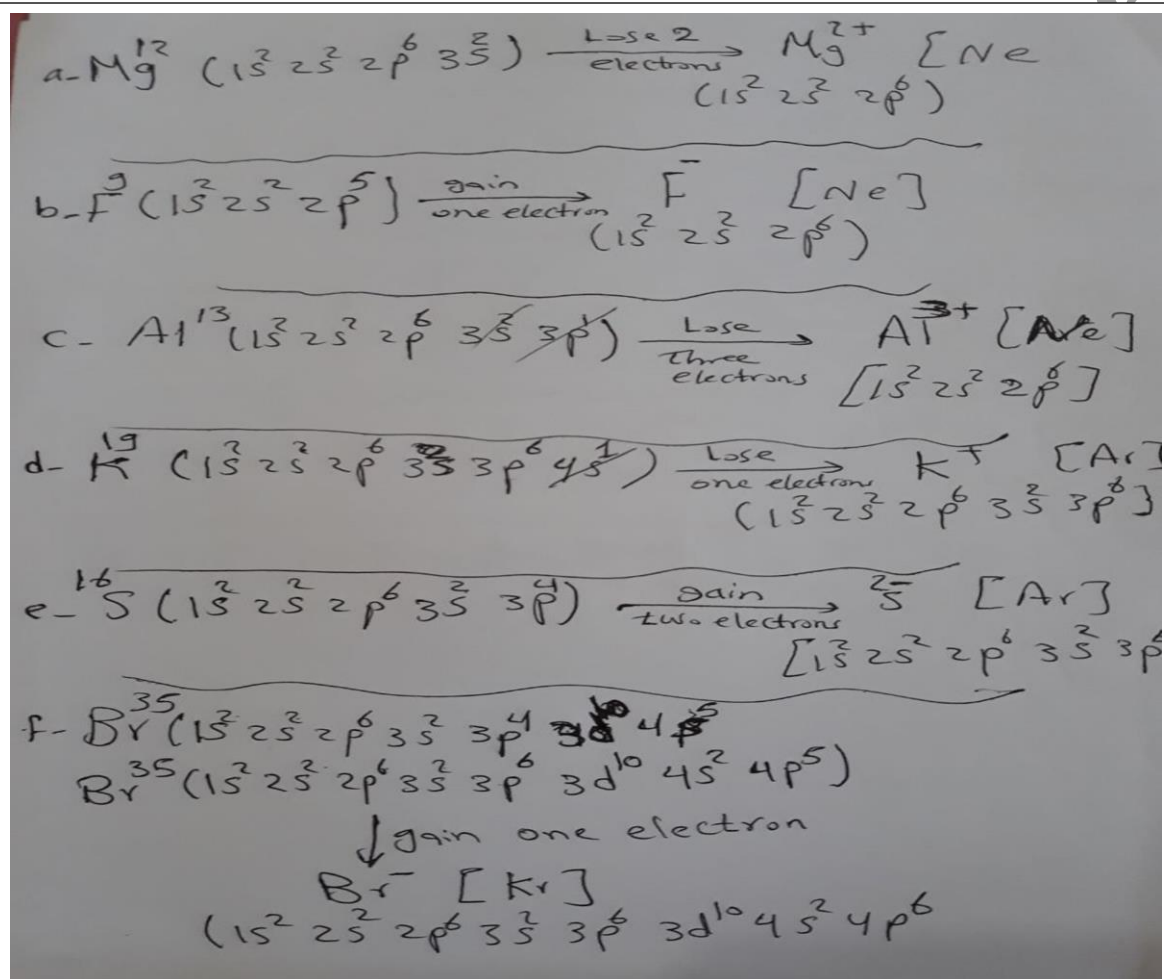 a- Mg¹² (1s² 2s² 2p⁶ 3s²) Lose 2 electrons → Mg²⁺ [Ne
(1s² 2s² 2p⁶)
b- F⁹ (1s² 2s² 2p⁵) gain one electron → F⁻ [Ne]
(1s² 2s² 2p⁶)
c- Al¹³ (1s² 2s² 2p⁶ 3s² 3p¹) Lose Three electrons → Al³⁺ [Ne]
[1s² 2s² 2p⁶]
d- K¹⁹ (1s² 2s² 2p⁶ 3s² 3p⁶ 4s¹) Lose one electrons → K⁺ [Ar]
(1s² 2s² 2p⁶ 3s² 3p⁶]
e- ¹⁶S (1s² 2s² 2p⁶ 3s² 3p⁴) gain two electrons → S²⁻ [Ar]
[1s² 2s² 2p⁶ 3s² 3p⁶
f- Br³⁵ (1s² 2s² 2p⁶ 3s² 3p⁴ 3d¹⁰ 4p⁵
Br³⁵ (1s² 2s² 2p⁶ 3s² 3p⁶ 3d¹⁰ 4s² 4p⁵)
↓ gain one electron
Br⁻ [Kr]
(1s² 2s² 2p⁶ 3s² 3p⁶ 3d¹⁰ 4s² 4p⁶